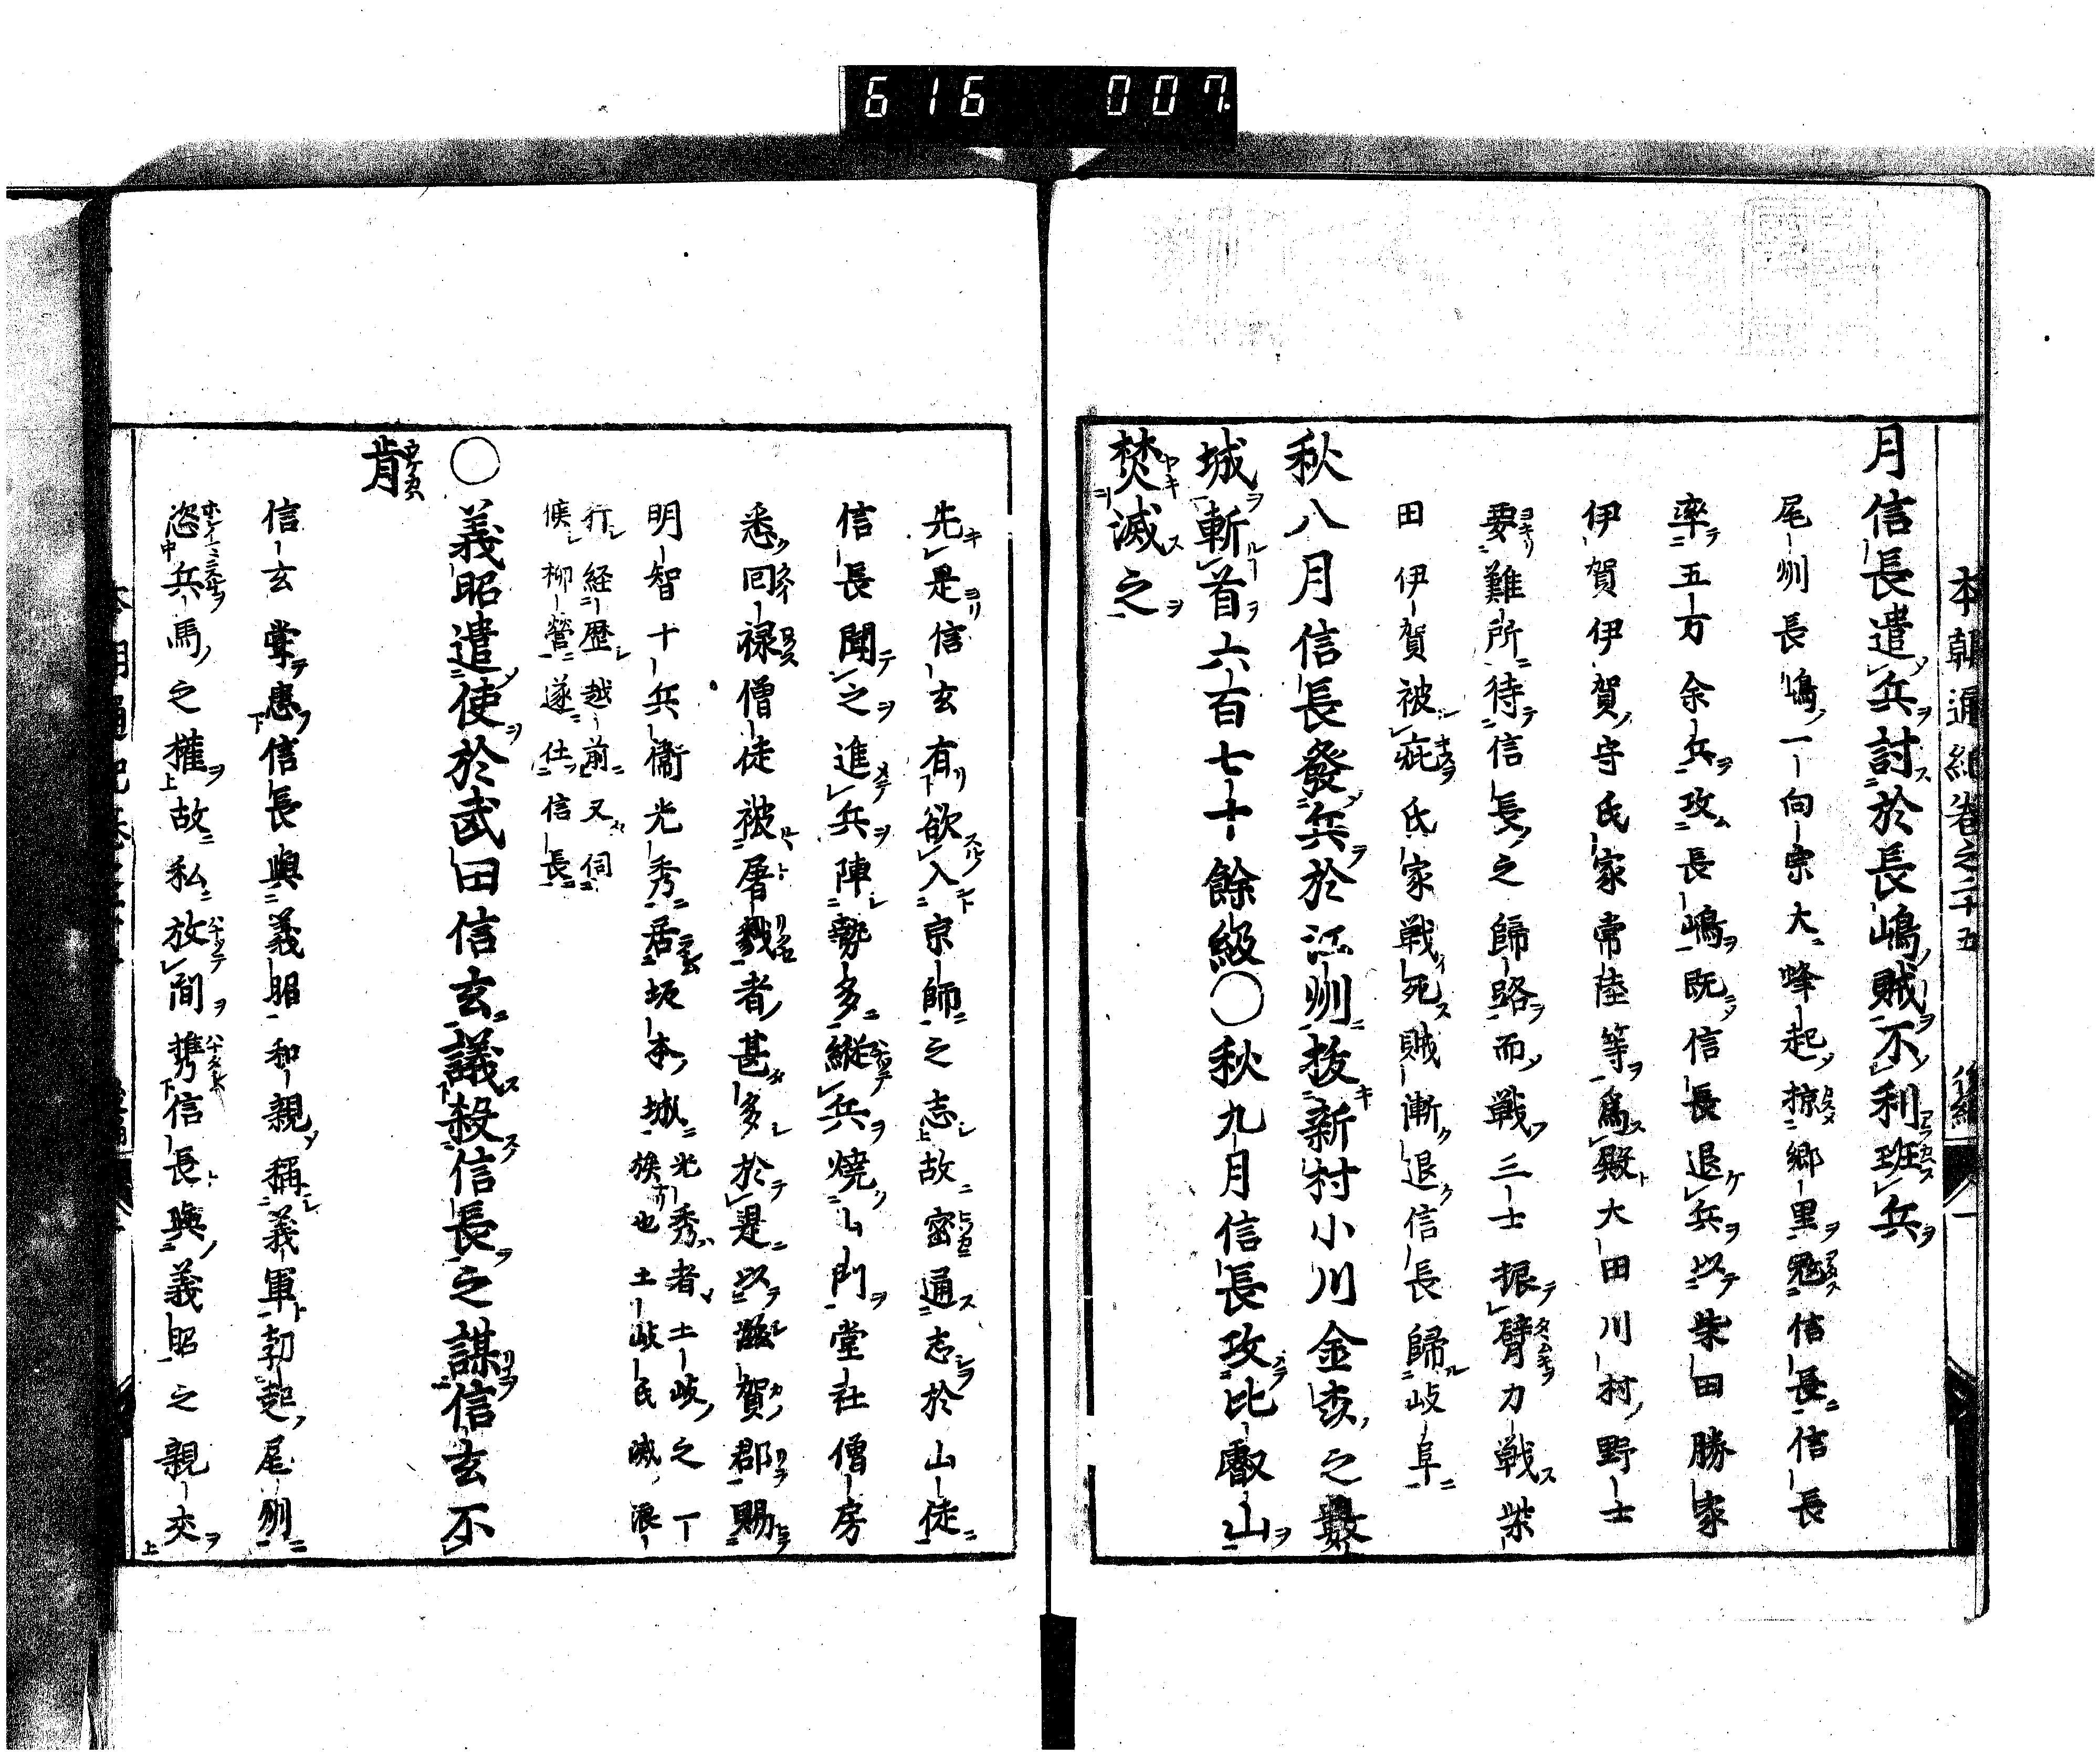 616 007
本朝通紀卷之二十五 後編 一
月信長遣兵討於長嶋賊不利班兵
尾州長嶋一向宗大蜂起掠鄉里寇信長信長
率五万余兵攻長嶋既信長退兵以柴田勝家
伊賀伊賀守氏家常陸等爲殿大田川村野士
要難所待信長之歸路而戰三士振臂力戰柴
田伊賀被疵氏家戰死賊漸退信長歸岐阜
秋八月信長發兵於江州拔新村小川金森之數
城斬首六百七十餘級〇秋九月信長攻比叡山
焚滅之
先是信玄有欲入京師之志故密通志於山徒
信長聞之進兵陣勢多縱兵燒山門堂社僧房
悉回祿僧徒被屠戮者甚多於是以滋賀郡賜
明智十兵衞光秀居坂本城光秀者土岐之丁
族也土岐氏滅浪
行経歴越前又伺
候柳營遂仕信長
〇義昭遣使於武田信玄議殺信長之謀信玄不
肯
信玄常患信長與義昭和親稱義軍勃起尾州
恣兵馬之權故私放間携信長與義昭之親交